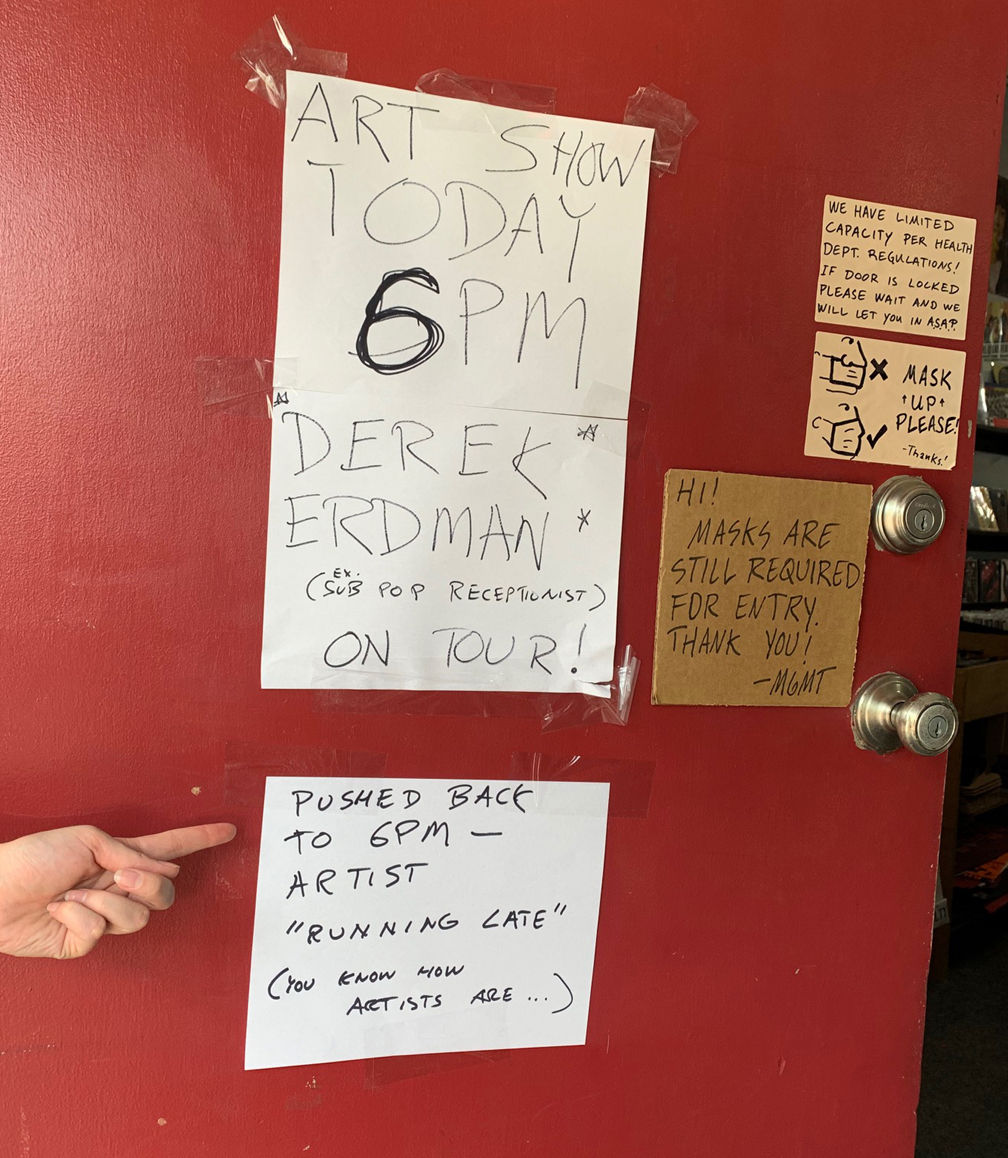 ART SHOW
TODAY
6PM
DEREK *
ERDMAN *
EX.
(SUB POP RECEPTIONIST)
ON TOUR!
PUSHED BACK
TO 6PM —
ARTIST
"RUNNING LATE"
(YOU KNOW HOW
ARTISTS ARE ...)
WE HAVE LIMITED
CAPACITY PER HEALTH
DEPT. REGULATIONS!
IF DOOR IS LOCKED
PLEASE WAIT AND WE
WILL LET YOU IN ASAP.
MASK
"UP"
PLEASE!
-Thanks!
HI!
MASKS ARE
STILL REQUIRED
FOR ENTRY.
THANK YOU!
-MGMT